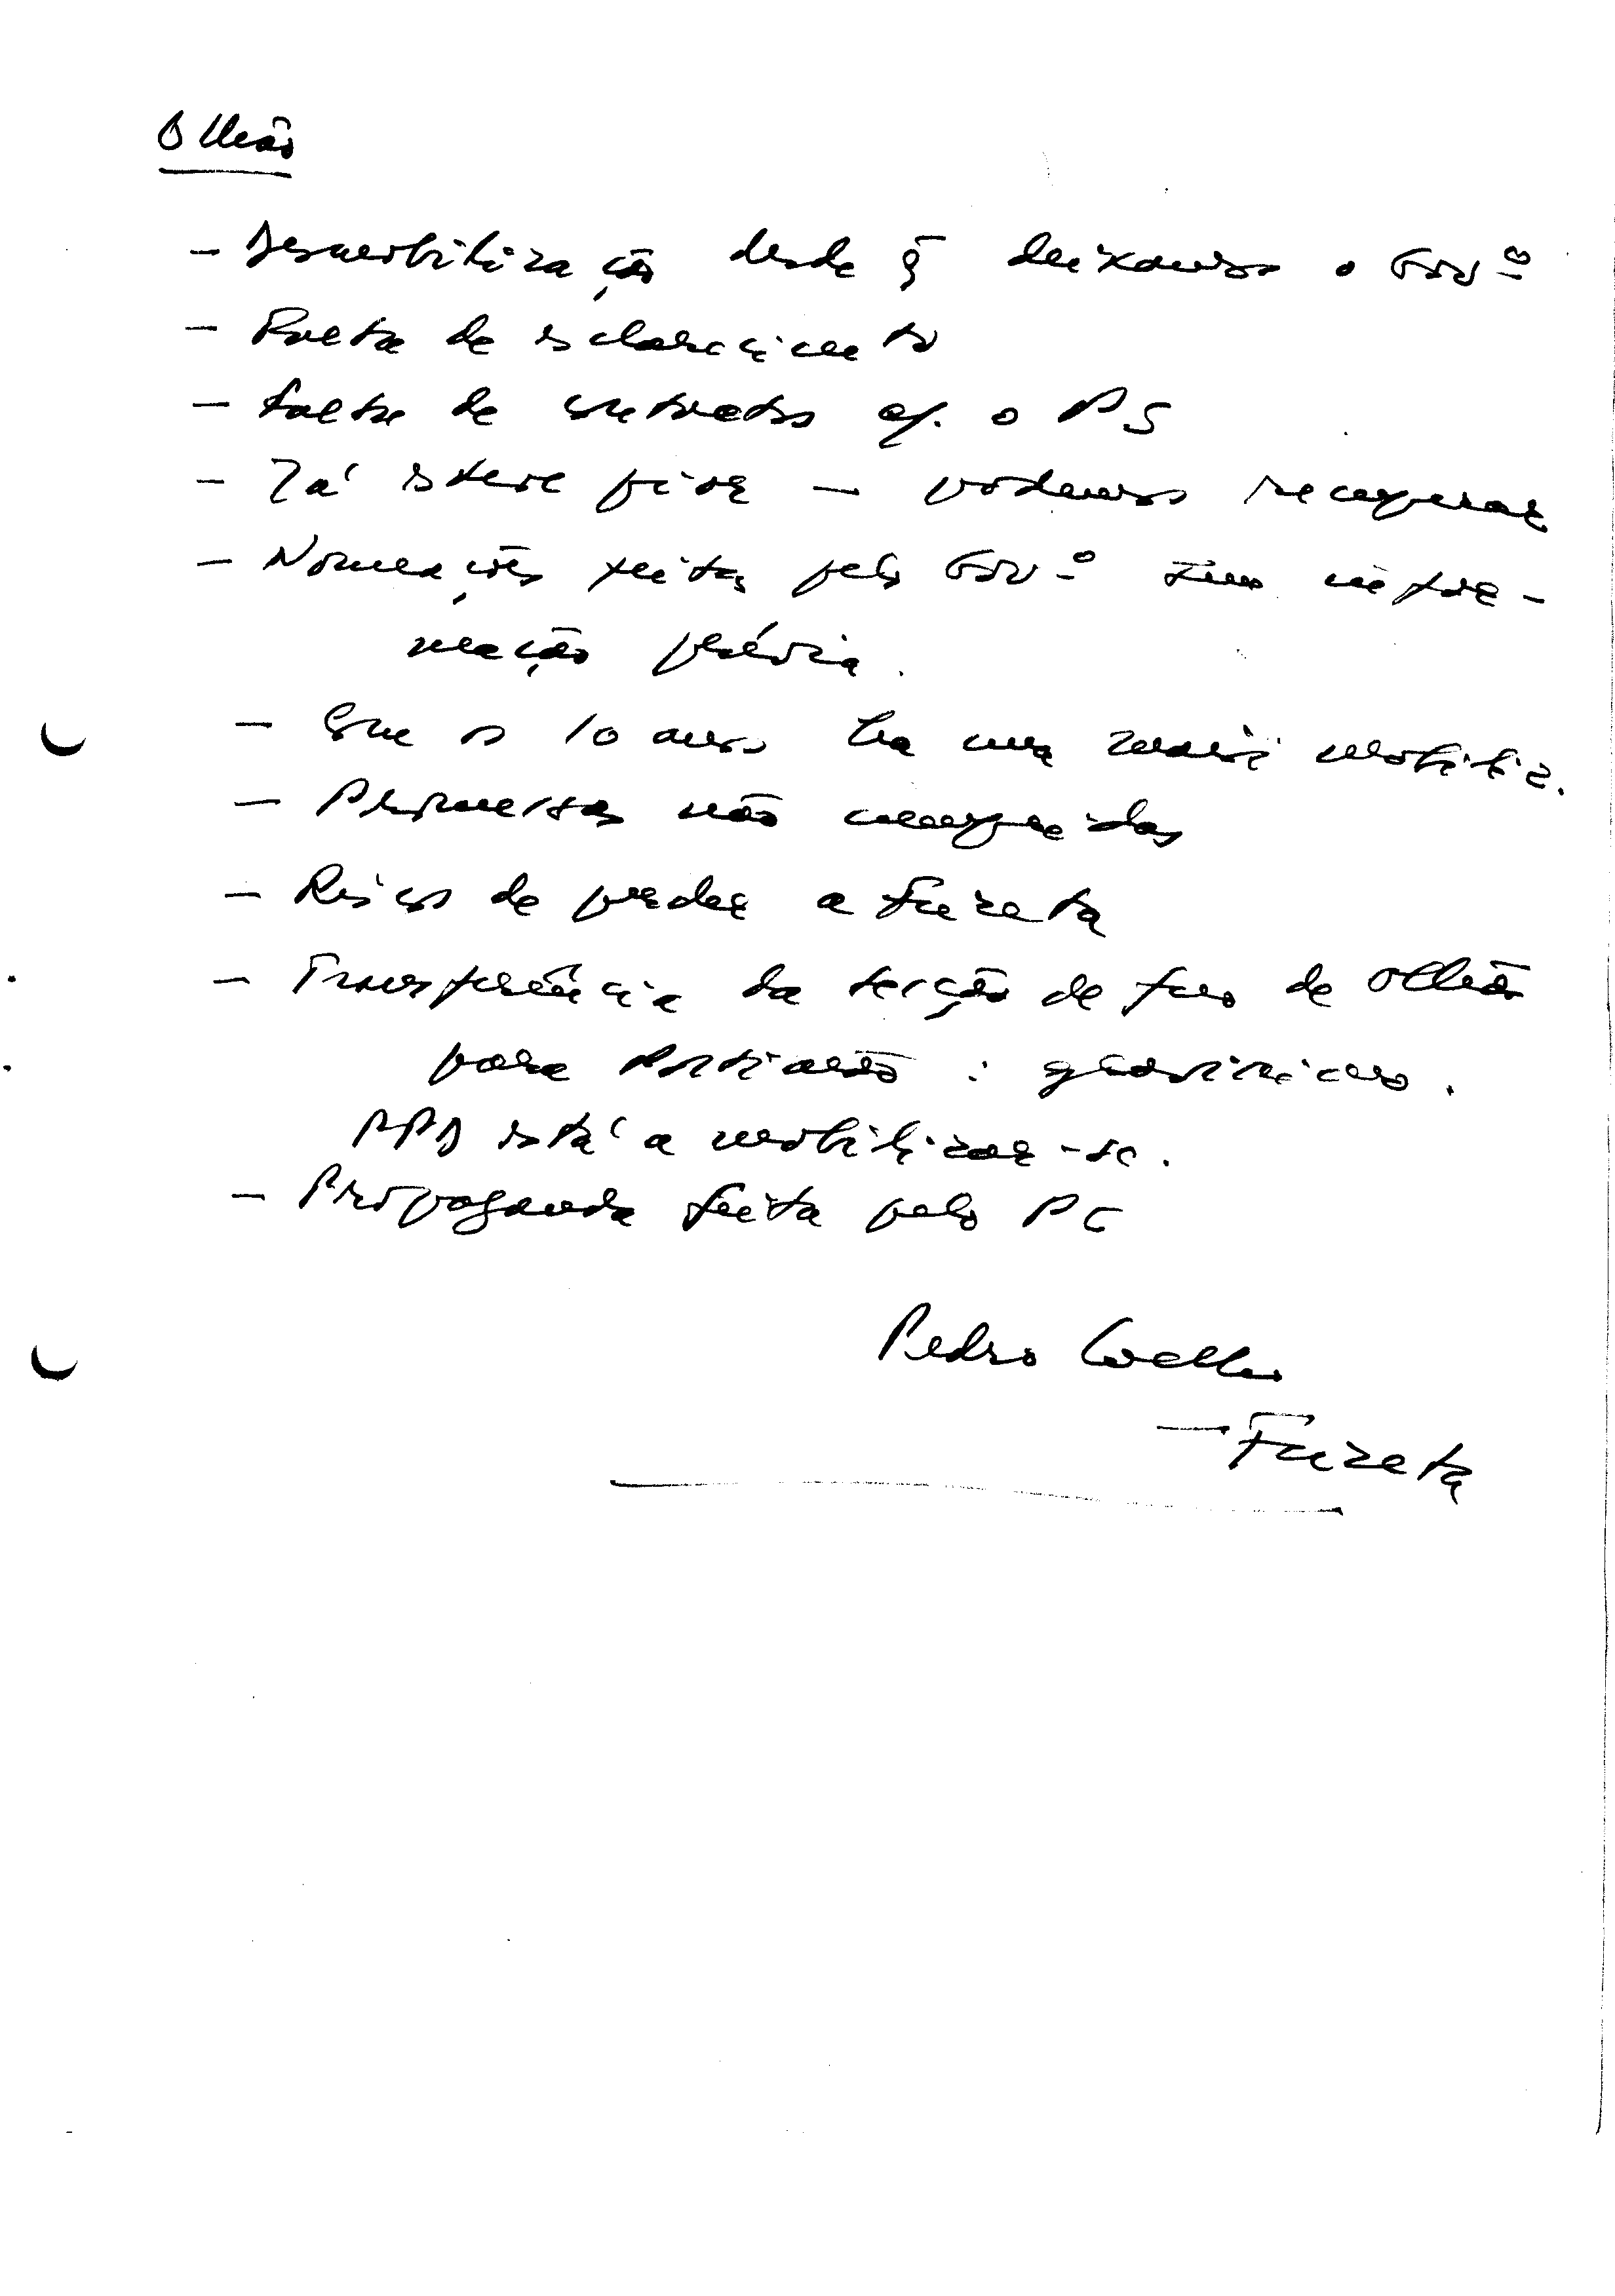 Olhão
- Desmobilização desde q̃ deixamos o Govº
- Falta de esclarecimento
- Falta de contactos c/. o PS
- Já esteve pior - podemos recuperar
- Nomeações feitas pelo Govº sem infor-
mação prévia.
- Com os 10 anos há uma maior mobiliz.
- Promessas não cumpridas
- Risco de perder a Fuzeta
- Transferência da secção de fus de Olhão
para Portimão : gravíssimo.
PPD está a mobilizar-se.
- Propaganda feita pelo PC
Pedro Coelho
- Fuzeta